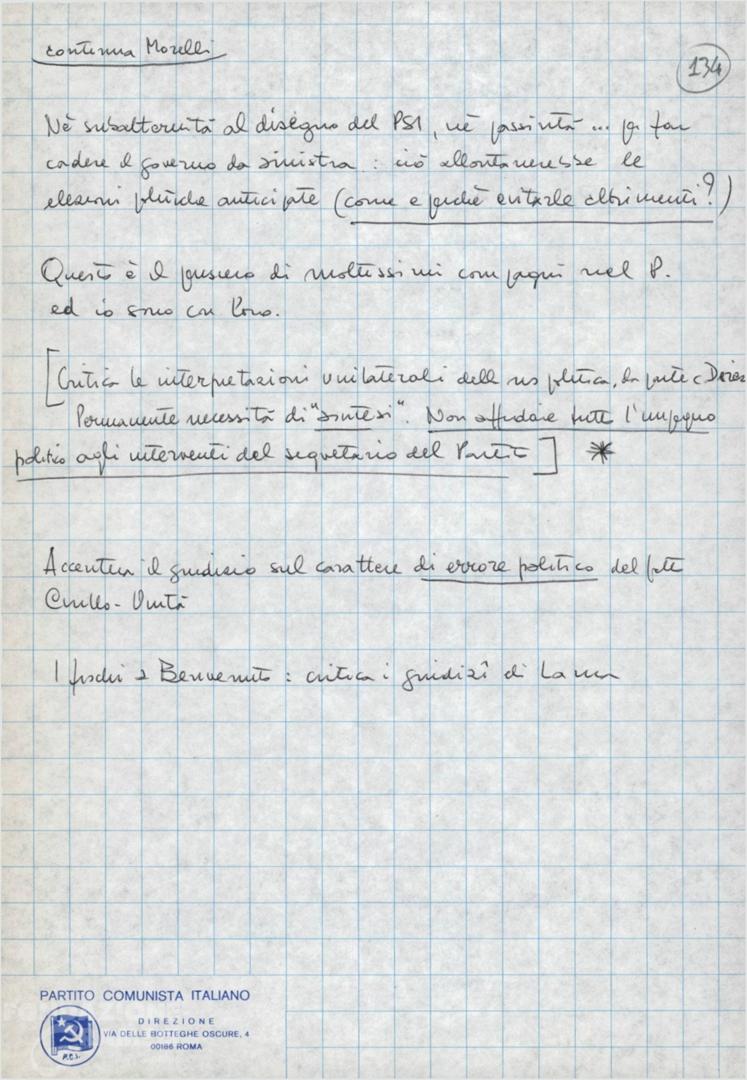 continua Morelli
134
Nè subalternità al disegno del PSI, nè passività ... per far
cadere il governo da sinistra : ciò allontanerebbe le
elezioni politiche anticipate (come e perchè evitarle altrimenti?)
Questo è il pensiero di moltissimi compagni nel P.
ed io sono con loro.
[Critica le interpretazioni unilaterali della ns politica, da parte
Permanente necessità di "sintesi". Non affidare tutto l'impegno
politico agli interventi del segretario del Partito] *
Accentua il giudizio sul carattere di errore politico del fatto
Cirillo-Unità
I fischi a Benvenuto : critica i giudizî di Lama
PARTITO COMUNISTA ITALIANO
DIREZIONE
VIA DELLE BOTTEGHE OSCURE, 4
00186 ROMA
P.C.I.